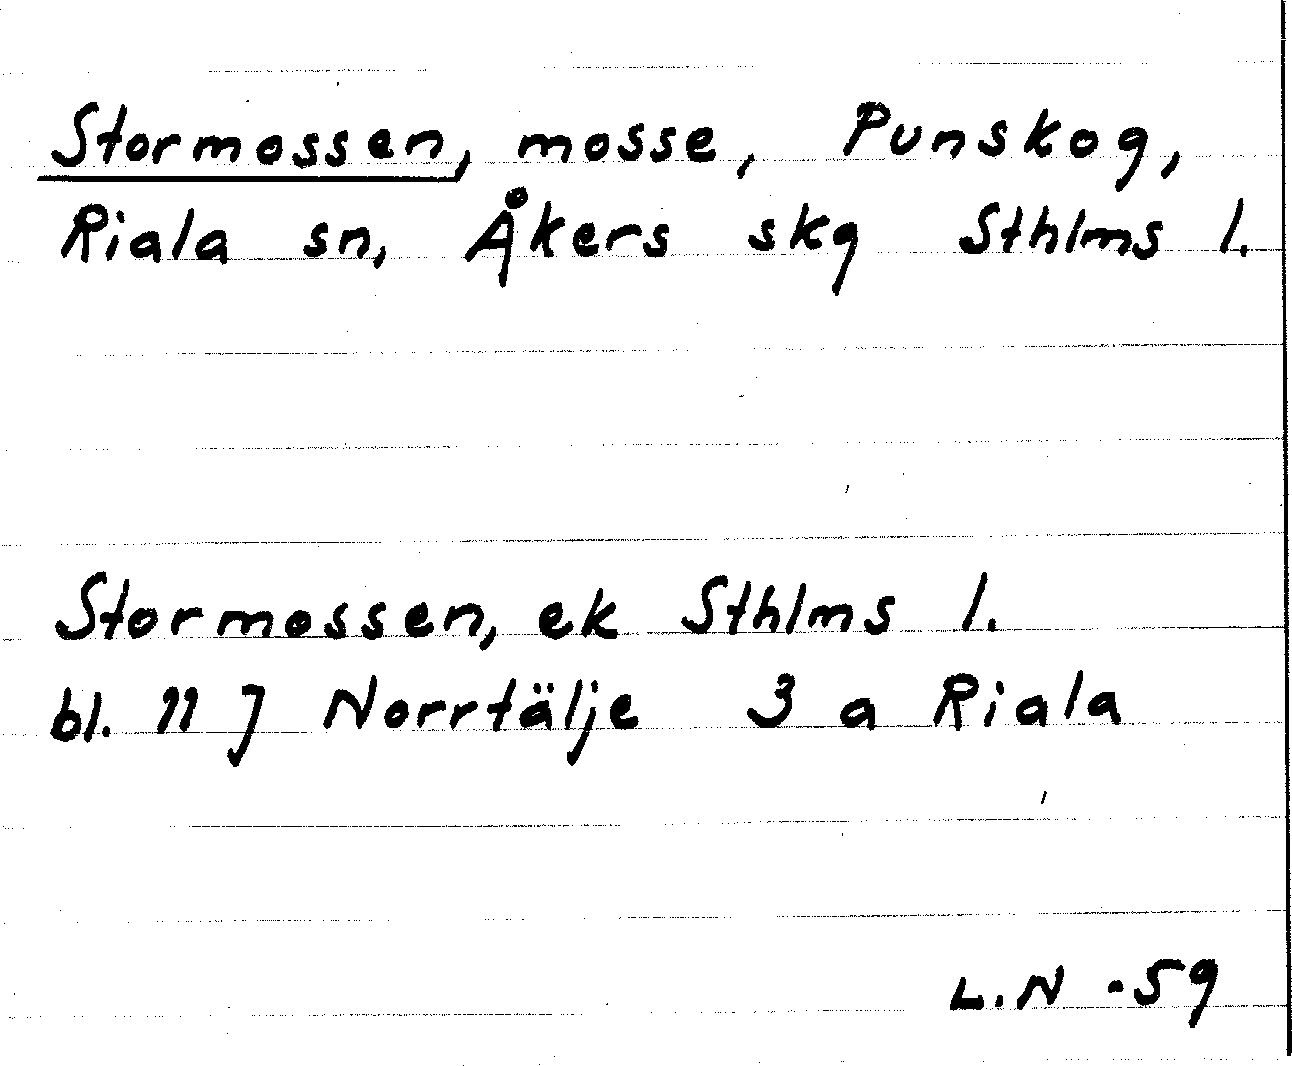 Stormossen, mosse, Punskog,
Riala sn, Åkers skg Sthlms l.
Stormossen, ek Sthlms l.
bl. 11 J Norrtälje 3 a Riala
L.N -59